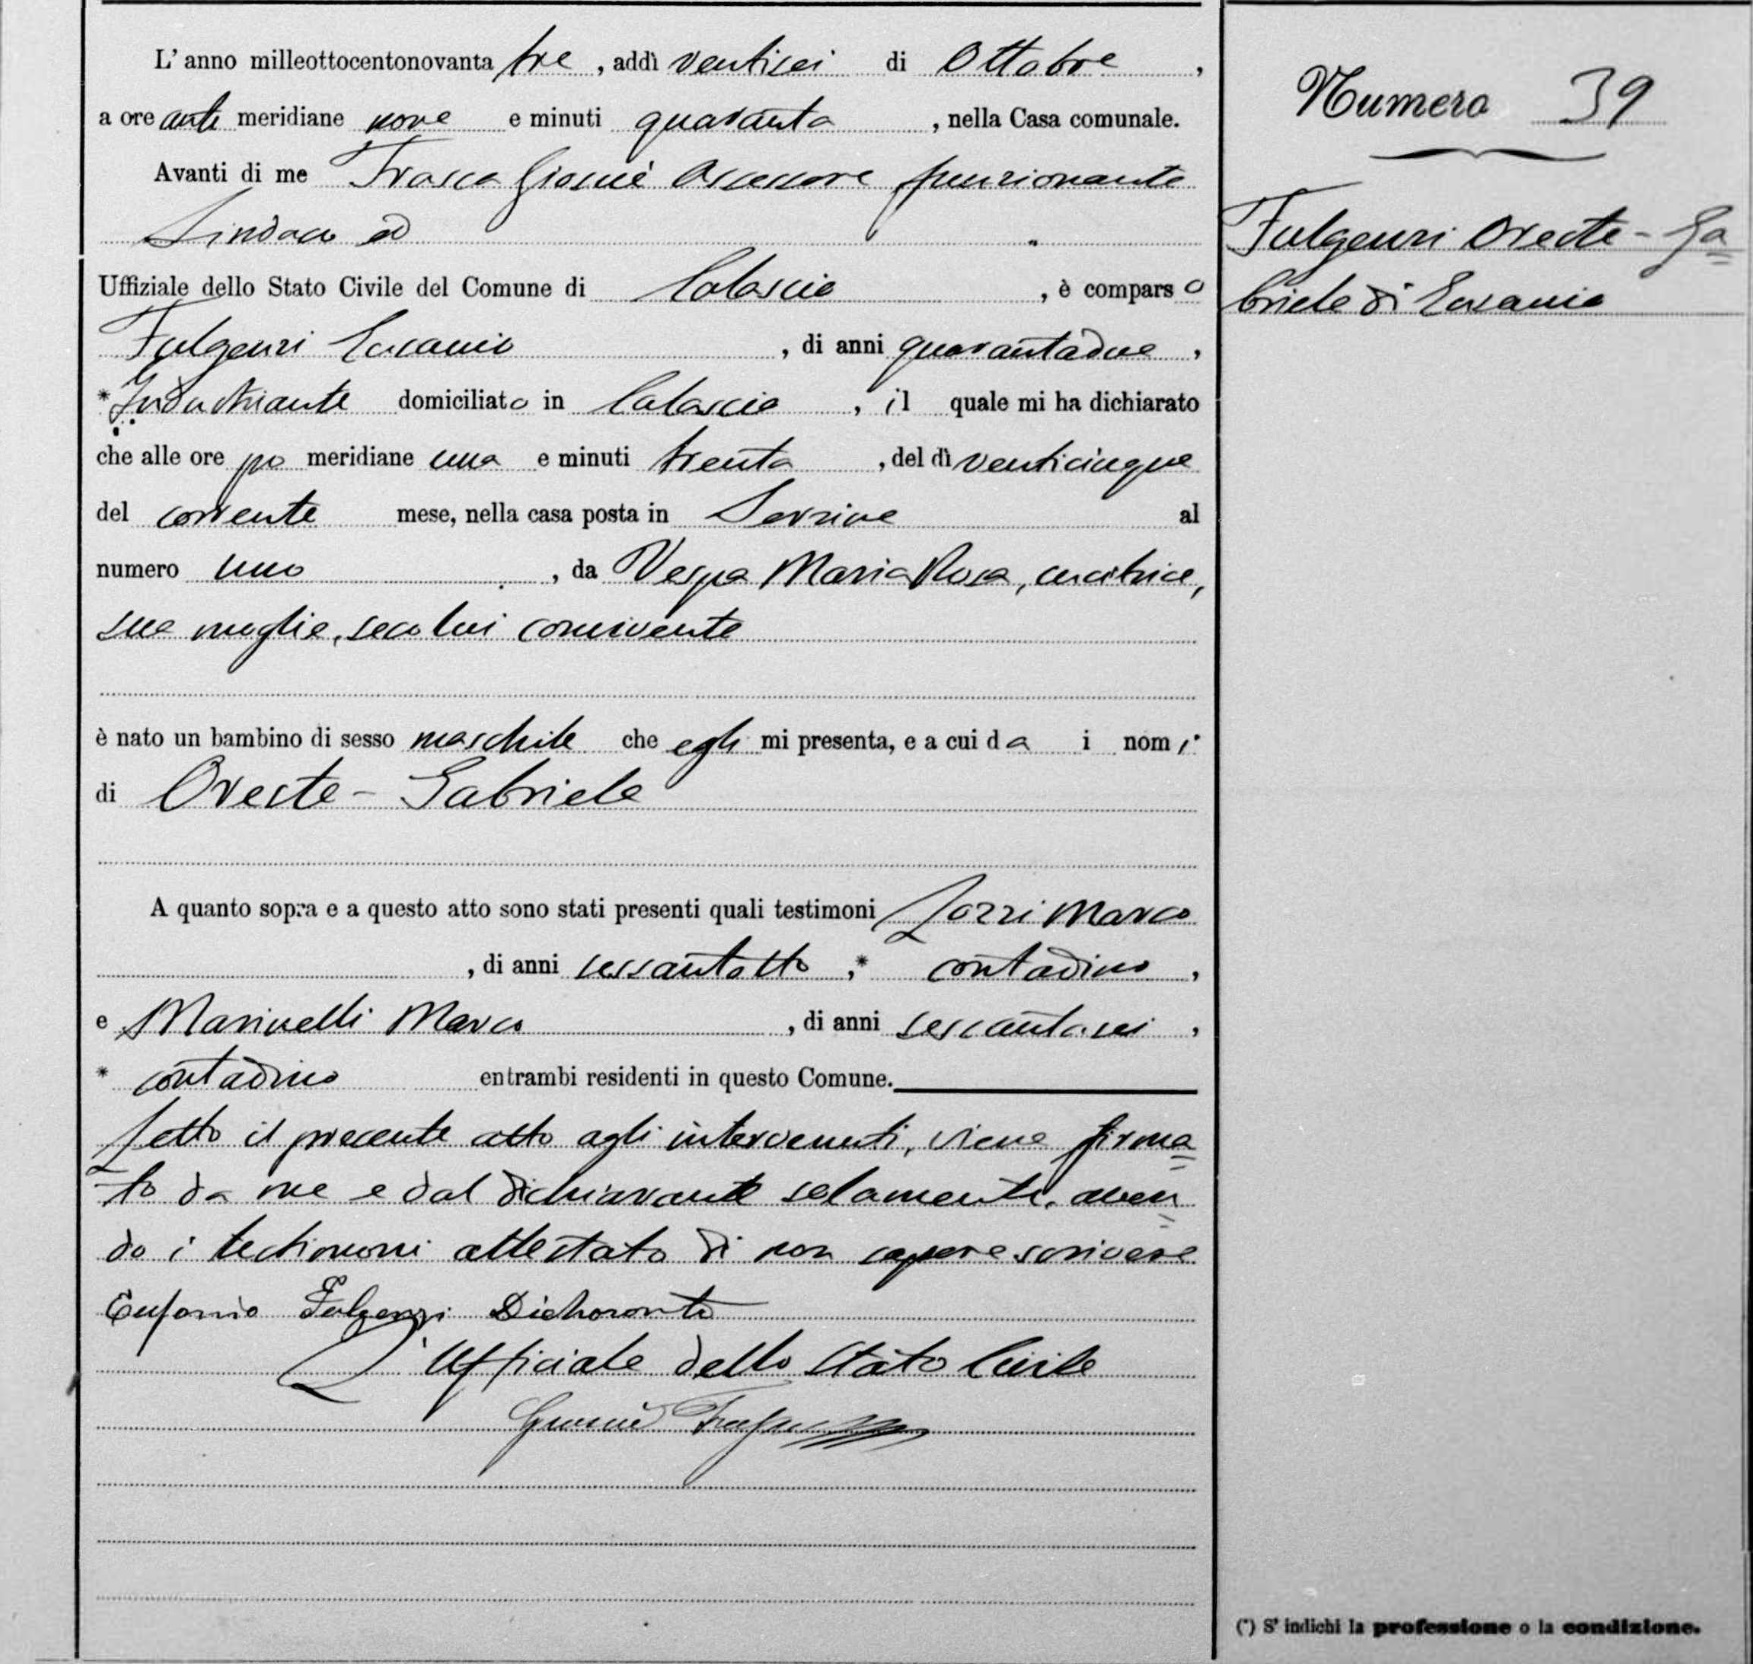 L' anno milleottocentonovanta tre, addì ventisei di Ottobre,
a ore anti meridiane nove e minuti quaranta, nella Casa comunale.
Avanti di me Frasca Giosuè Assessore funzionante
Sindaco ed
Uffiziale dello Stato Civile del Comune di Calascio, è comparso
Fulgenzi, di anni quarantadue,
* Industriante domiciliato in Calascio, il quale mi ha dichiarato
che alle ore po meridiane una e minuti trenta, del dì venticinque
del corrente mese, nella casa posta in al
numero uno, da Vespa Maria Rosa, cucitrice,
sua moglie, seco lui convivente
è nato un bambino di sesso maschile che egli mi presenta, e a cui da i nomi
di Oreste - Gabriele
A quanto sopra e a questo atto sono stati presenti quali testimoni Lozzi Marco
, di anni sessantotto, * contadino,
e Marinelli Marco, di anni sessantasei,
* contadino entrambi residenti in questo Comune.
Letto il presente atto agli intervenuti, viene firma=
to da me e dal dichiarante solamente, aven=
do i testimoni attestato di non sapere scrivere
Fulgenzi Dichiarante
L'Ufficiale dello Stato Civile
Giosuè Frasca
Numero 39
Fulgenzi Oreste - Ga=
briele di
(*) S' indichi la professione o la condizione.